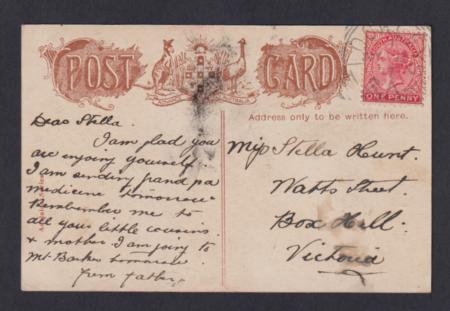 POST CARD
SOUTH AUSTRALIA
ONE PENNY
Address only to be written here.
Dear Stella.
I am glad you
are enjoying yourself
I am sending grand pa
medicine tomorrow
Remember me to
all your little cousins
& mother I am going to
Mt Barker tomorrow
from father
Miss Stella Hunt.
Watts Street
Box Hill.
Victoria